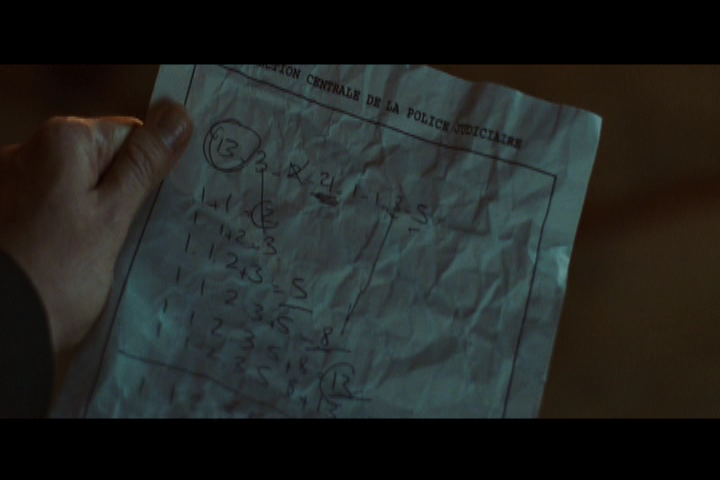 CTION CENTRALE DE LA POLICE JUDICIAIRE
13 3 - 8 - 21 - 1 - 1 - 2 - 5
1 + 1 = 2
1 1 + 2 = 3
1 1 2 + 3 = 5
1 1 2 3 + 5 = 8
1 1 2 3 5 + 8 = 13